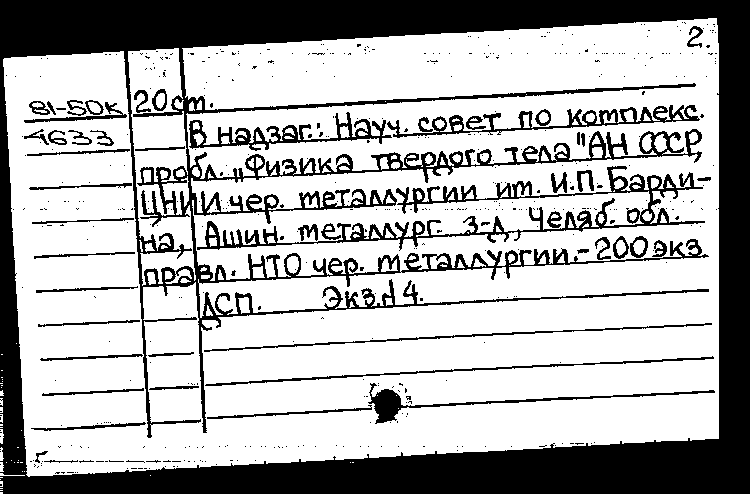 2.
81-50К 20 ст.
4633 В надзаг.: Науч. совет по комплекс.
пробл. „Физика твердого тела" АН СССР,
ЦНИИ чер. металлургии им. И.П. Барди-
на, Ашин. металлург. з-д, Челяб. обл.
правл. НТО чер. металлургии.-200 экз.
ДСП. Экз. 4.